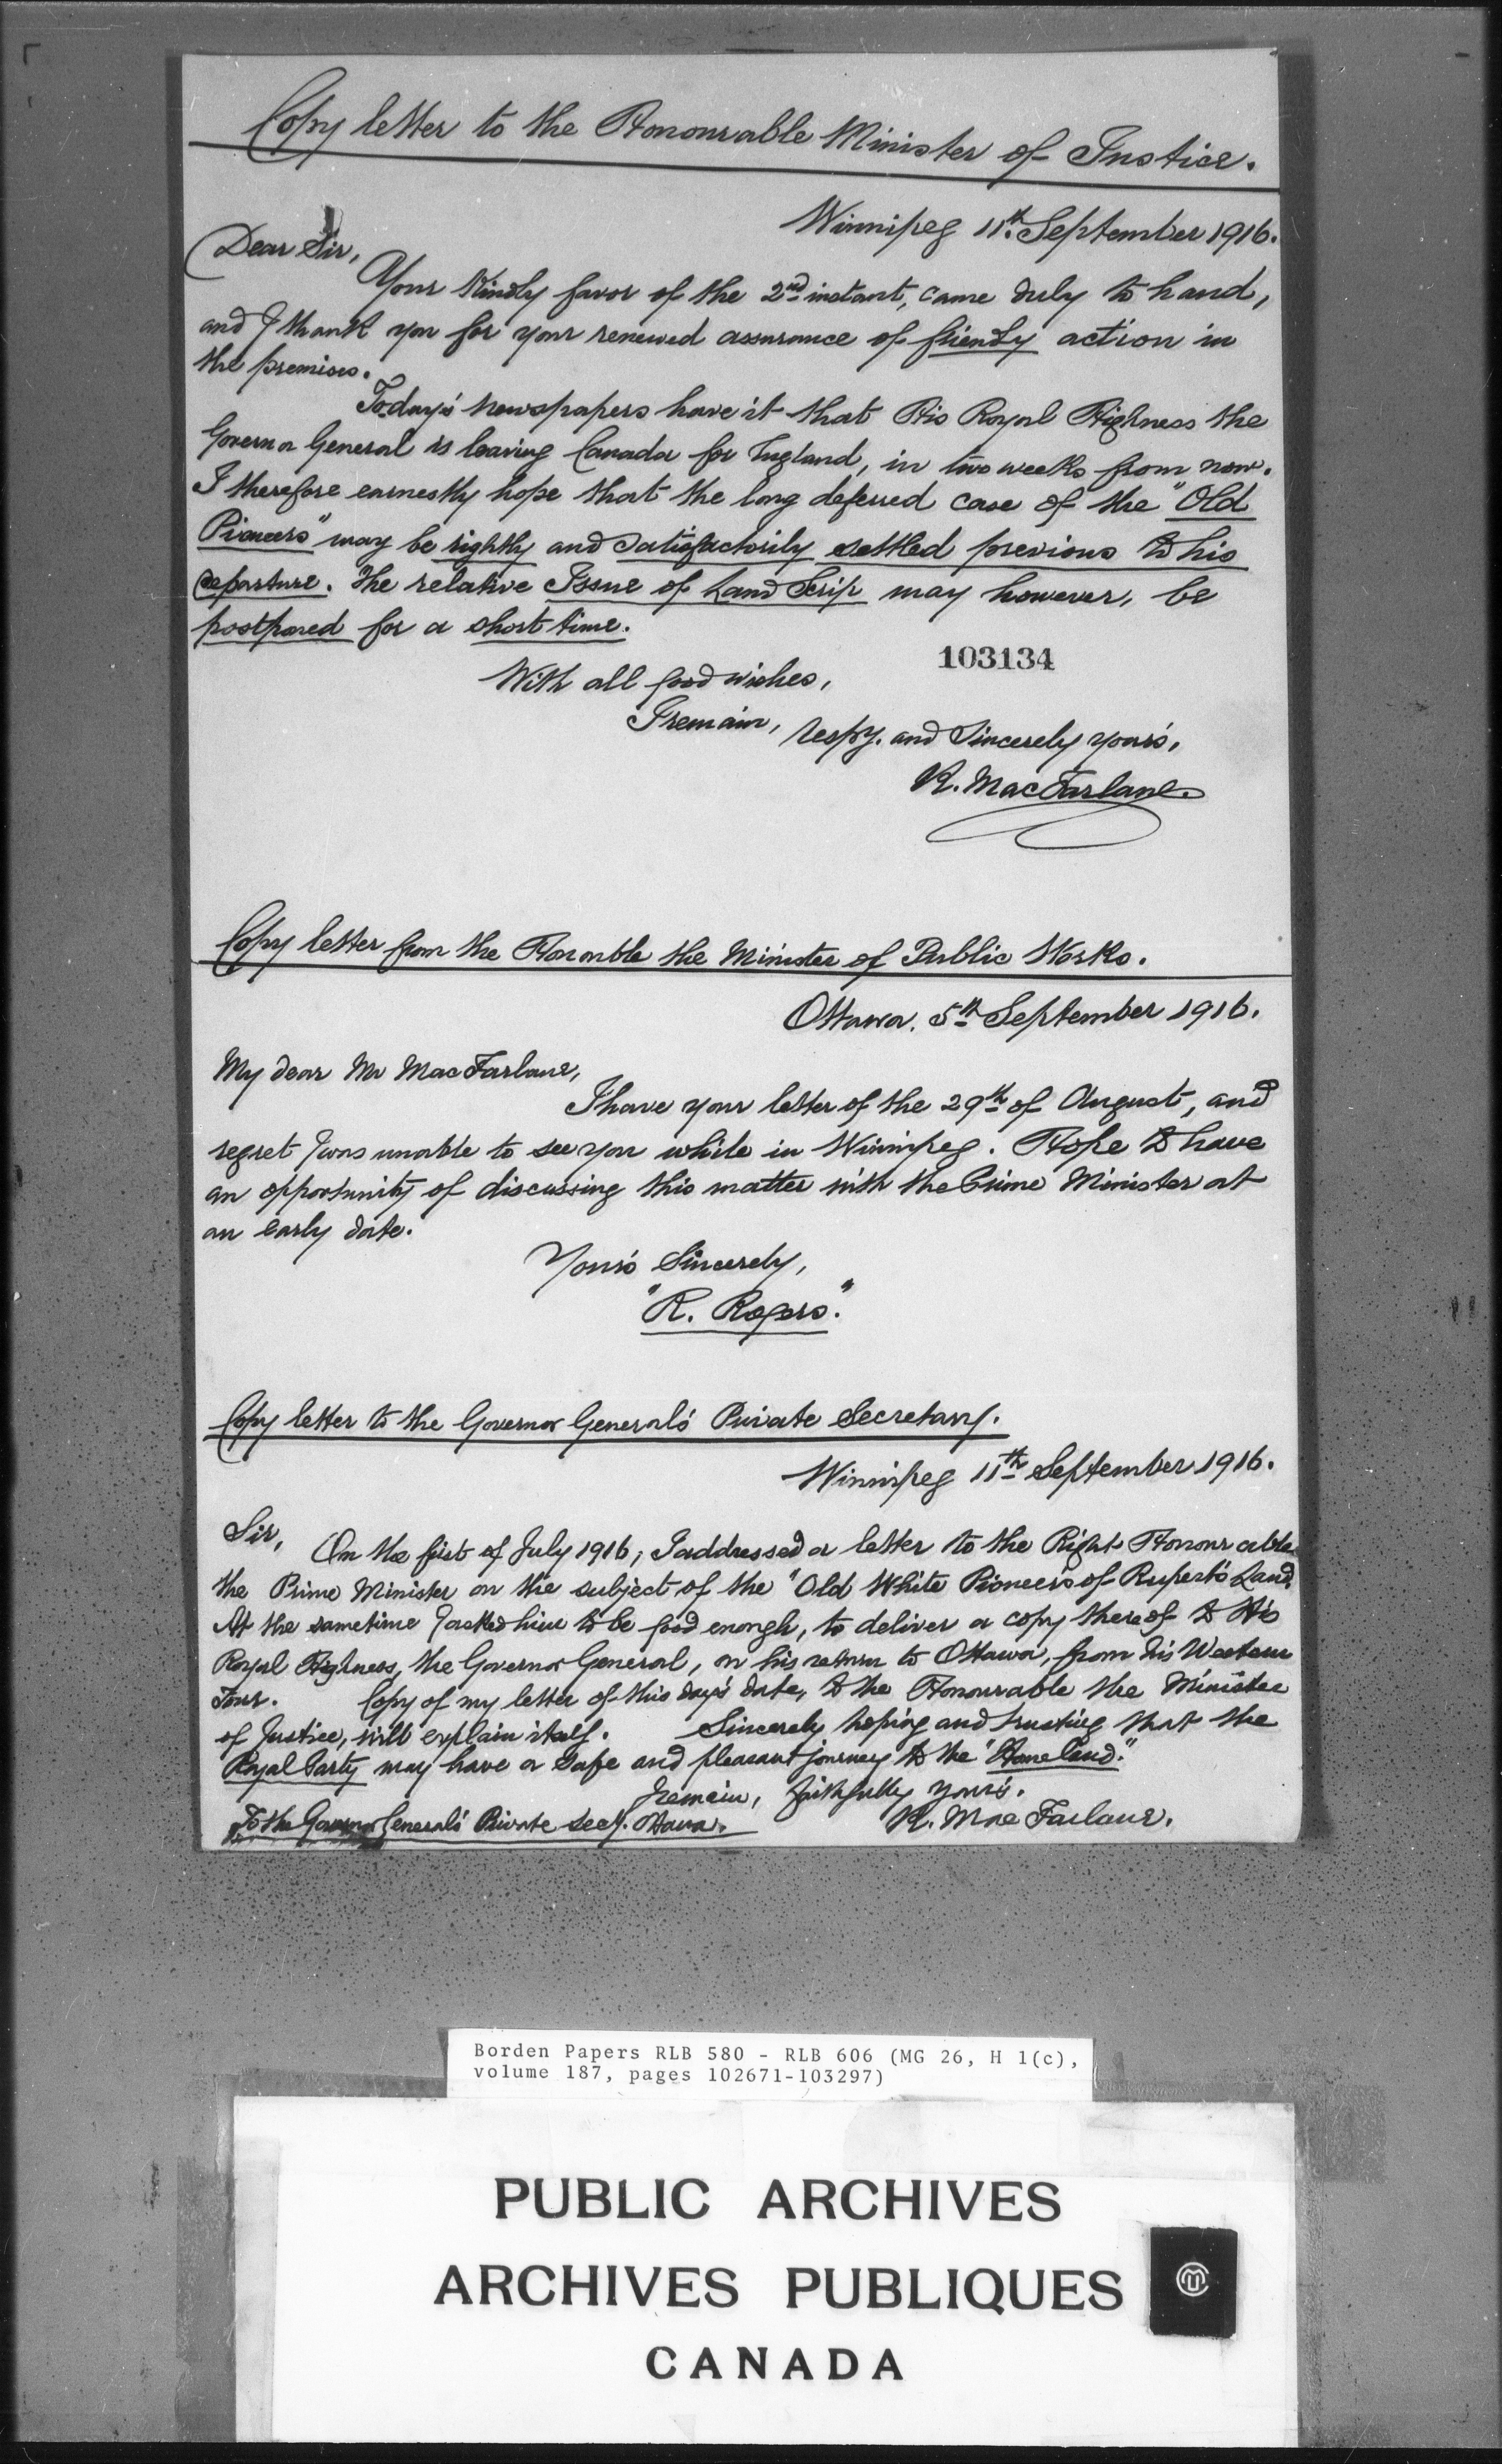 Copy letter to the Honourable Minister of Justice.
Winnipeg 11th September 1916.
Dear Sir,
Your Kindly favor of the 2nd instant, came duly to hand,
and I thank you for your renewed assurance of friendly action in
the premises.
Today's newspapers have it that His Royal Highness the
Governor General is leaving Canada for England, in two weeks from now.
I therefore earnestly hope that the long deferred case of the "Old
Pioneers" may be rightly and satisfactorily settled previous to his
departure. The relative Issue of Land Scrip may however, be
postponed for a short time.
103134
With all good wishes,
I remain, respy. and Sincerely yours,
R. MacFarlane.
Copy letter from the Honorable the Minister of Public Works.
Ottawa. 5th September 1916.
My dear Mr MacFarlane,
I have your letter of the 29th of August, and
regret I was unable to see you while in Winnipeg. Hope to have
an opportunity of discussing this matter with the Prime Minister at
an early date.
Yours Sincerely,
"R. Rogers."
Copy letter to the Governor General's Private Secretary.
Winnipeg 11th September 1916.
Sir, On the first of July 1916, I addressed a letter to the Right Honourable
the Prime Minister on the subject of the "Old White Pioneers of Rupert's Land.
At the sametime I asked him to be good enough, to deliver a copy thereof to His
Royal Highness, the Governor General, on his return to Ottawa, from his Western
Tour. Copy of my letter of this day's date, to the Honourable the Minister
of Justice, will explain itself. Sincerely hoping and trusting that the
Royal Party may have a safe and pleasant journey to the "Homeland."
I remain, faithfully yours.
To the Governor General's Private Secy. Ottawa. R. MacFarlane.
Borden Papers RLB 580 - RLB 606 (MG 26, H 1(c),
volume 187, pages 102671-103297)
PUBLIC ARCHIVES
ARCHIVES PUBLIQUES
CANADA